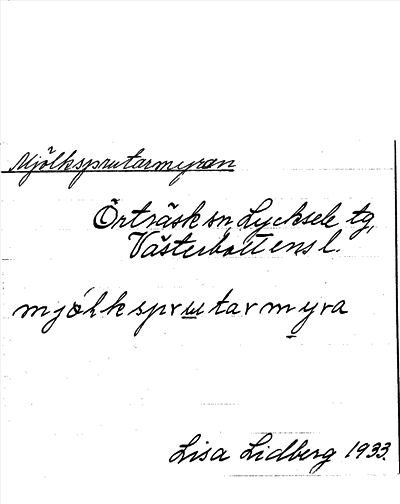 Mjölksprutarmyran
Örträsk sn, Lycksele tg,
Västerbottens l.
mjölksprutarmyra
Lisa Lidberg 1933.